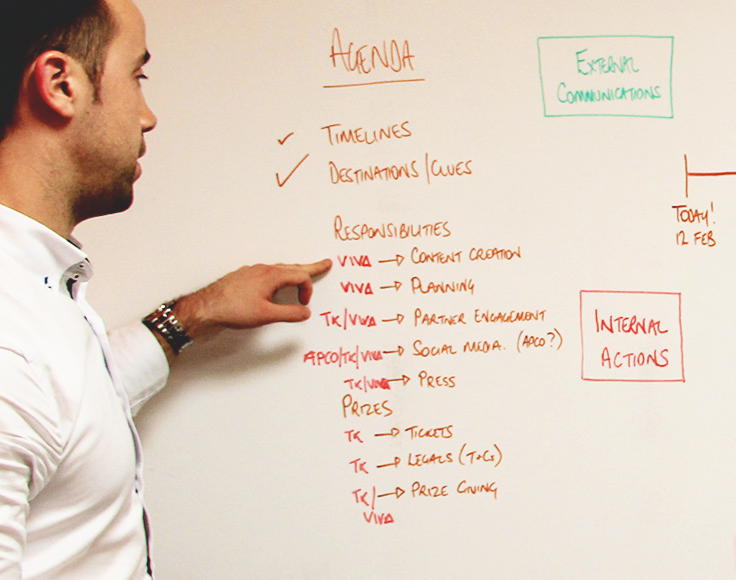 AGENDA
EXTERNAL
COMMUNICATIONS
✓ TIMELINES
✓ DESTINATIONS/CLUES
TODAY!
12 FEB
RESPONSIBILITIES
VIVA → CONTENT CREATION
VIVA → PLANNING
TK/VIVA → PARTNER ENGAGEMENT
APCO/TK/VIVA → SOCIAL MEDIA. (APCO?)
TK/VIVA → PRESS
INTERNAL
ACTIONS
PRIZES
TK → TICKETS
TK → LEGALS (T+Cs)
TK/ → PRIZE GIVING
VIVA